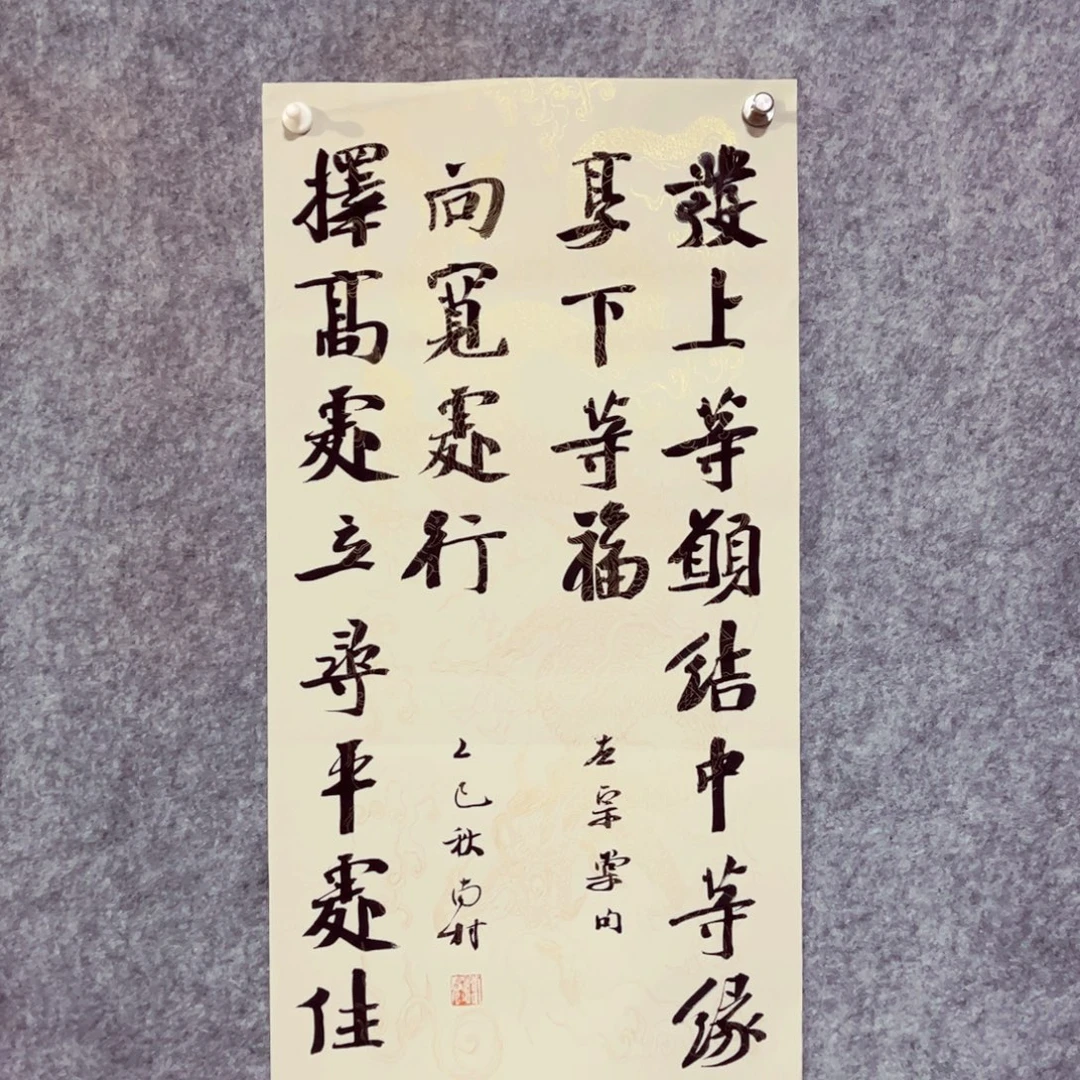 發上等願結中等緣
享下等福
左宗棠句
擇高處立尋平處住
向寬處行
乙巳秋